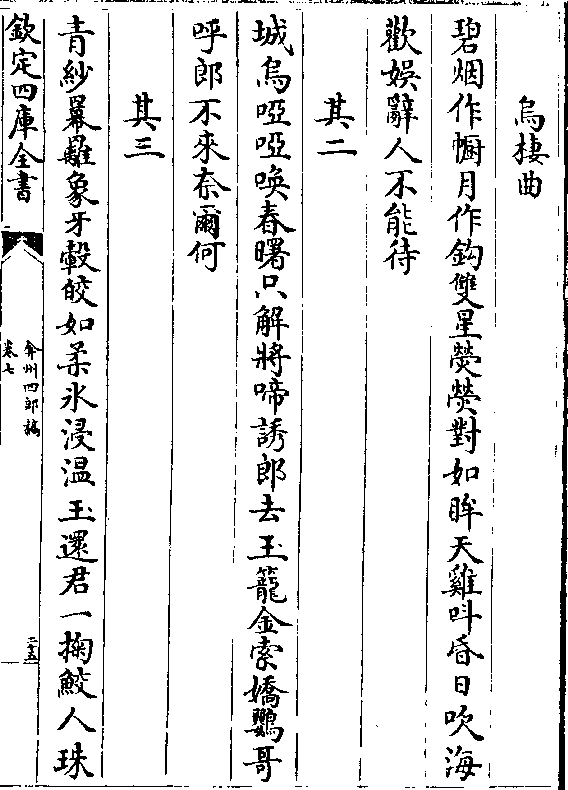 烏棲曲
碧烟作㡡月作鈎雙星熒熒對如眸天雞呌昏日吹海
歡娛辭人不能待
其二
城烏啞啞喚春曙只解將啼誘郎去玉籠金索嬌鸚哥
呼郎不來奈爾何
其三
青紗羃䍦象牙轂皎如柔氷浸温玉還君一掬鮫人珠
欽定四庫全書
弇州四部稿
卷七
二十五